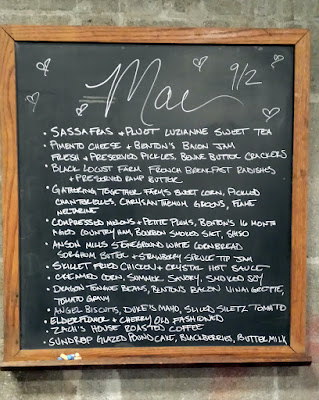 Mae 9/2
• SASSAFRAS + PLUOT LUZIANNE SWEET TEA
• PIMENTO CHEESE + BENTON'S BACON JAM
FRESH + PRESERVED PICKLES, BENNE BUTTER CRACKERS
• BLACK LOCUST FARM FRENCH BREAKFAST RADISHES
+ PRESERVED RAMP BUTTER
• GATHERING TOGETHER FARMS SWEET CORN, PICKLED
CHANTERELLES, CHRYSANTHEMUM GREENS, FLAME
NECTARINE
• COMPRESSED MELONS + PETITE PLUMS, BENTON'S 16 MONTH
AGED COUNTRY HAM, BOURBON SMOKED SALT, SHISO
• ANSON MILLS STONEGROUND WHITE CORNBREAD
SORGHUM BUTTER + STRAWBERRY SPRUCE TIP JAM
• SKILLET FRIED CHICKEN + CRYSTAL HOT SAUCE
• CREAMED CORN, SUMMER SAVORY, SMOKED SOY
• DRAGON TONGUE BEANS, BENTON'S BACON VINAIGRETTE,
TOMATO GRAVY
• ANGEL BISCUITS, DUKE'S MAYO, SLICED SILETZ TOMATO
• ELDERFLOWER + CHERRY OLD FASHIONED
• ZACH'S HOUSE ROASTED COFFEE
• SUNDROP GLAZED POUND CAKE, BLACKBERRIES, BUTTERMILK